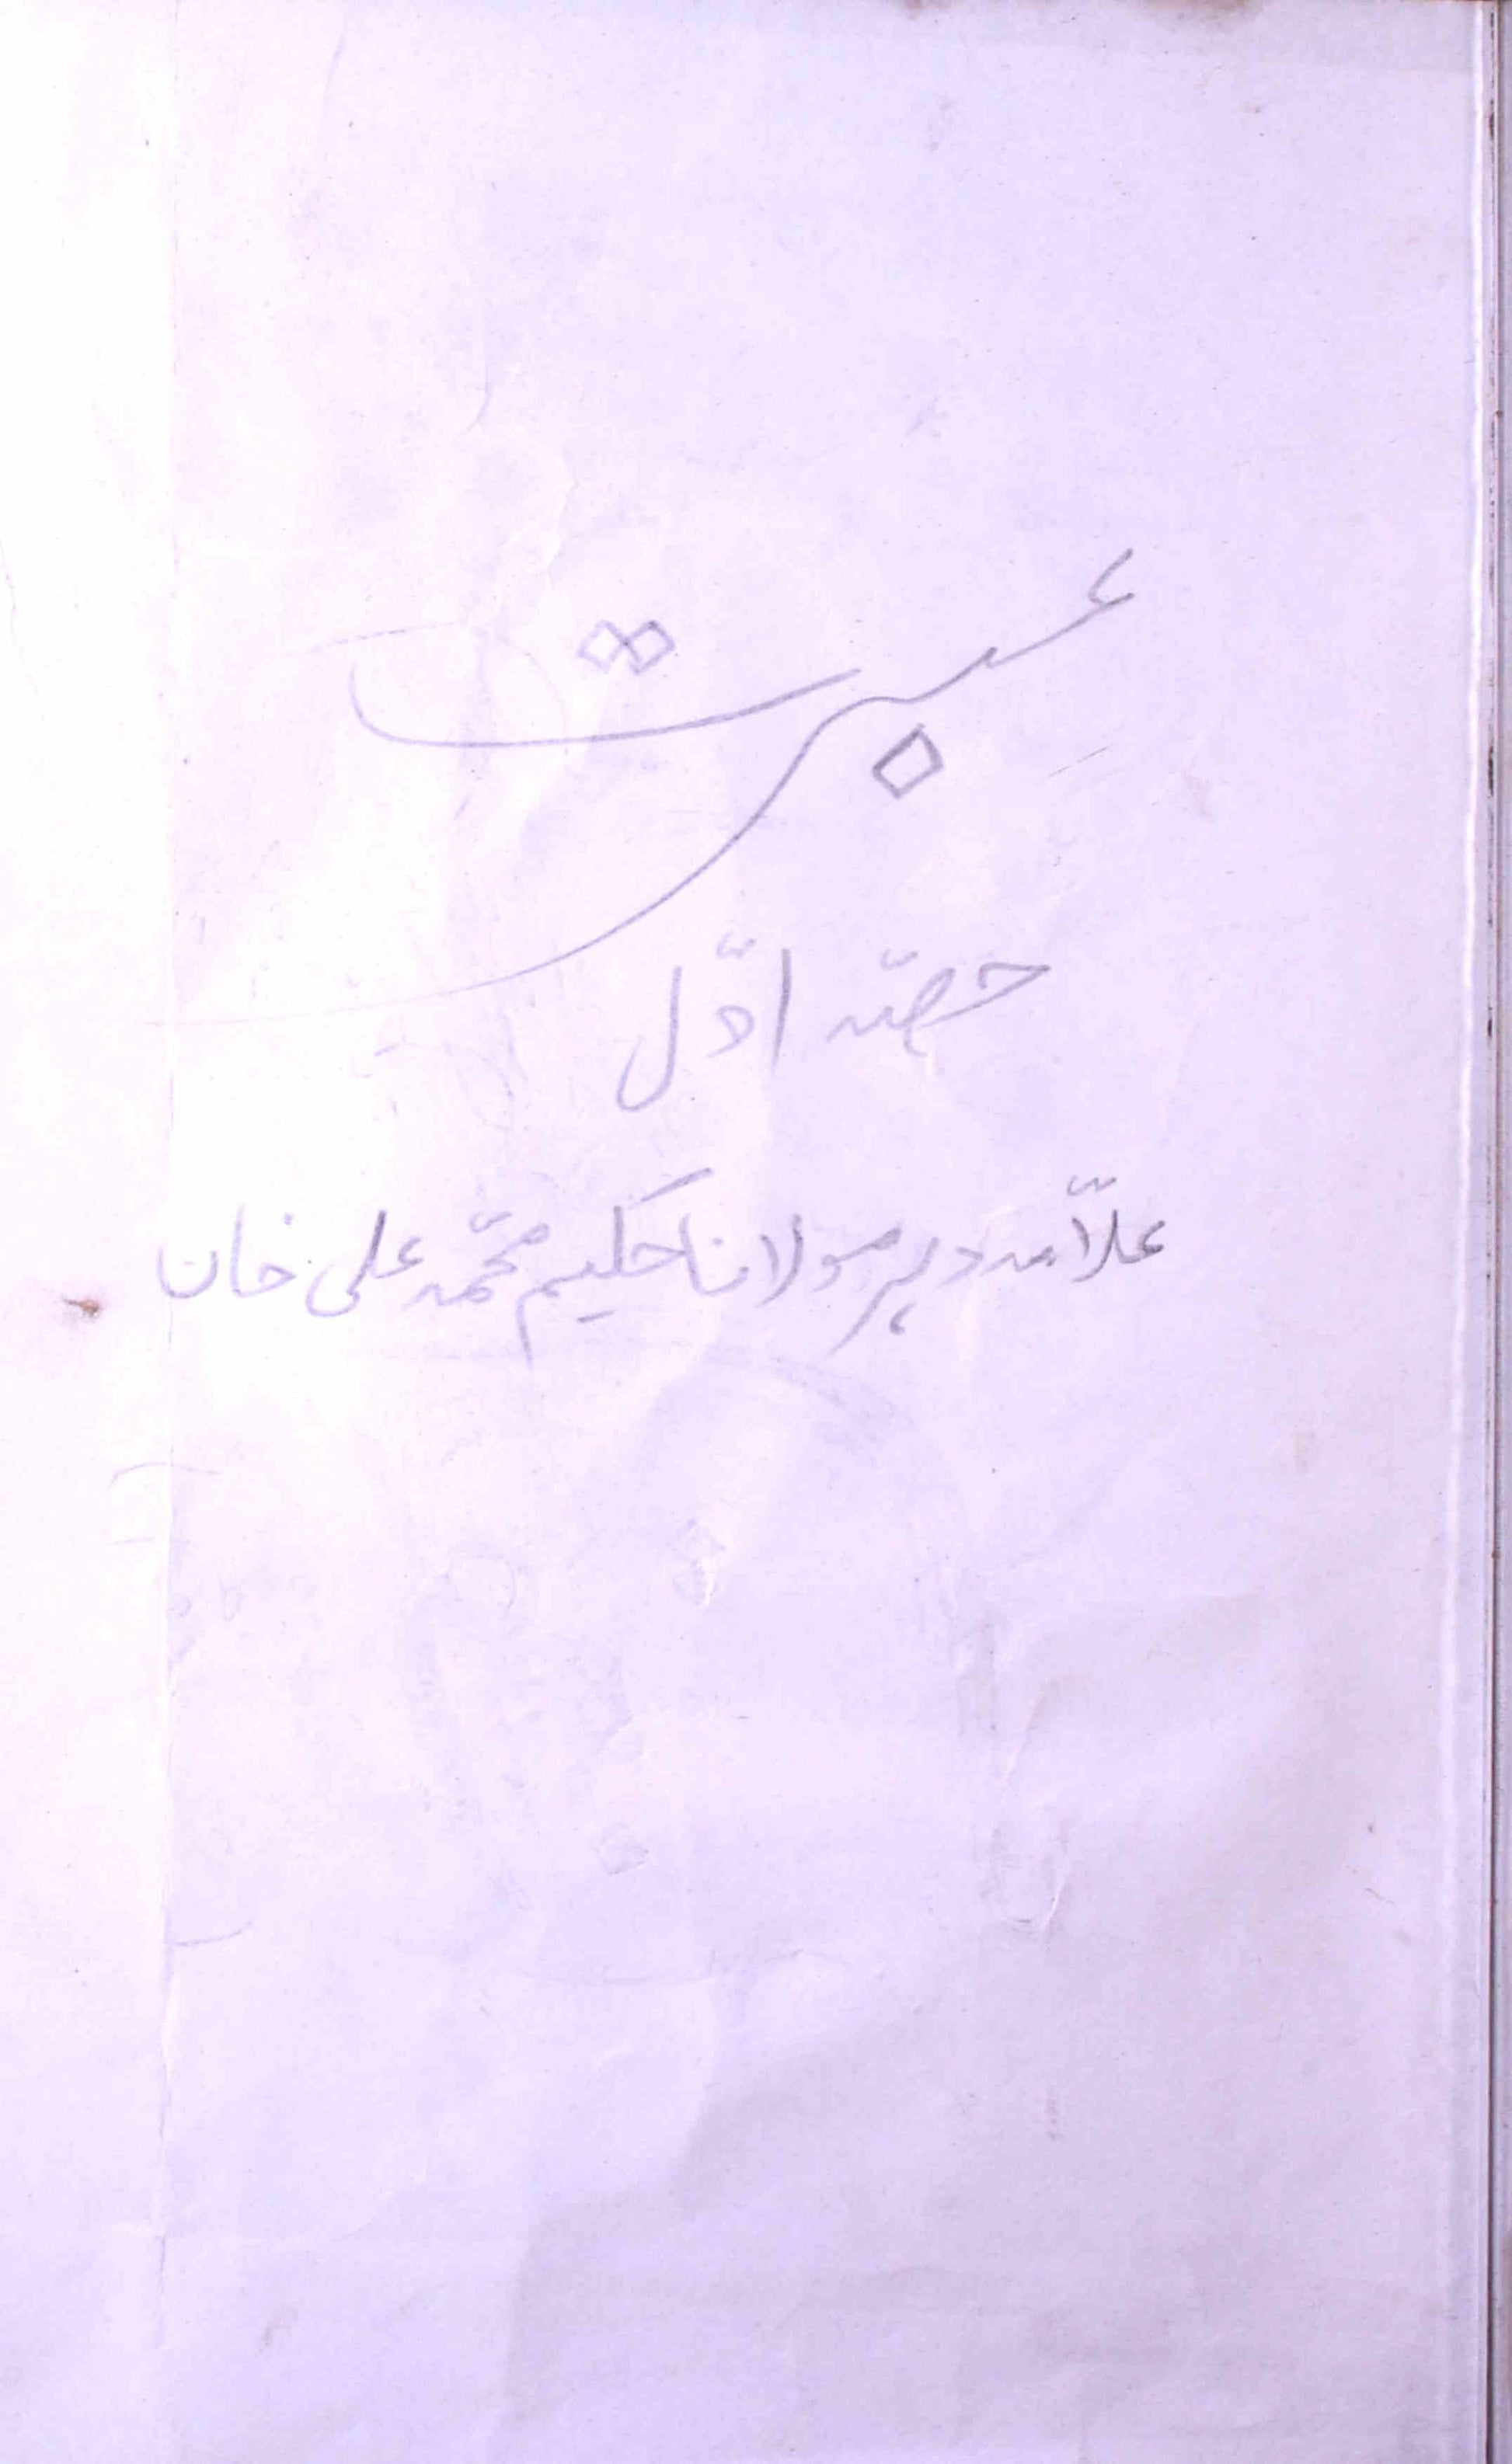 عبرت
حصّہ اوّل
علّامہ دہر مولانا حکیم محمّد علی خان